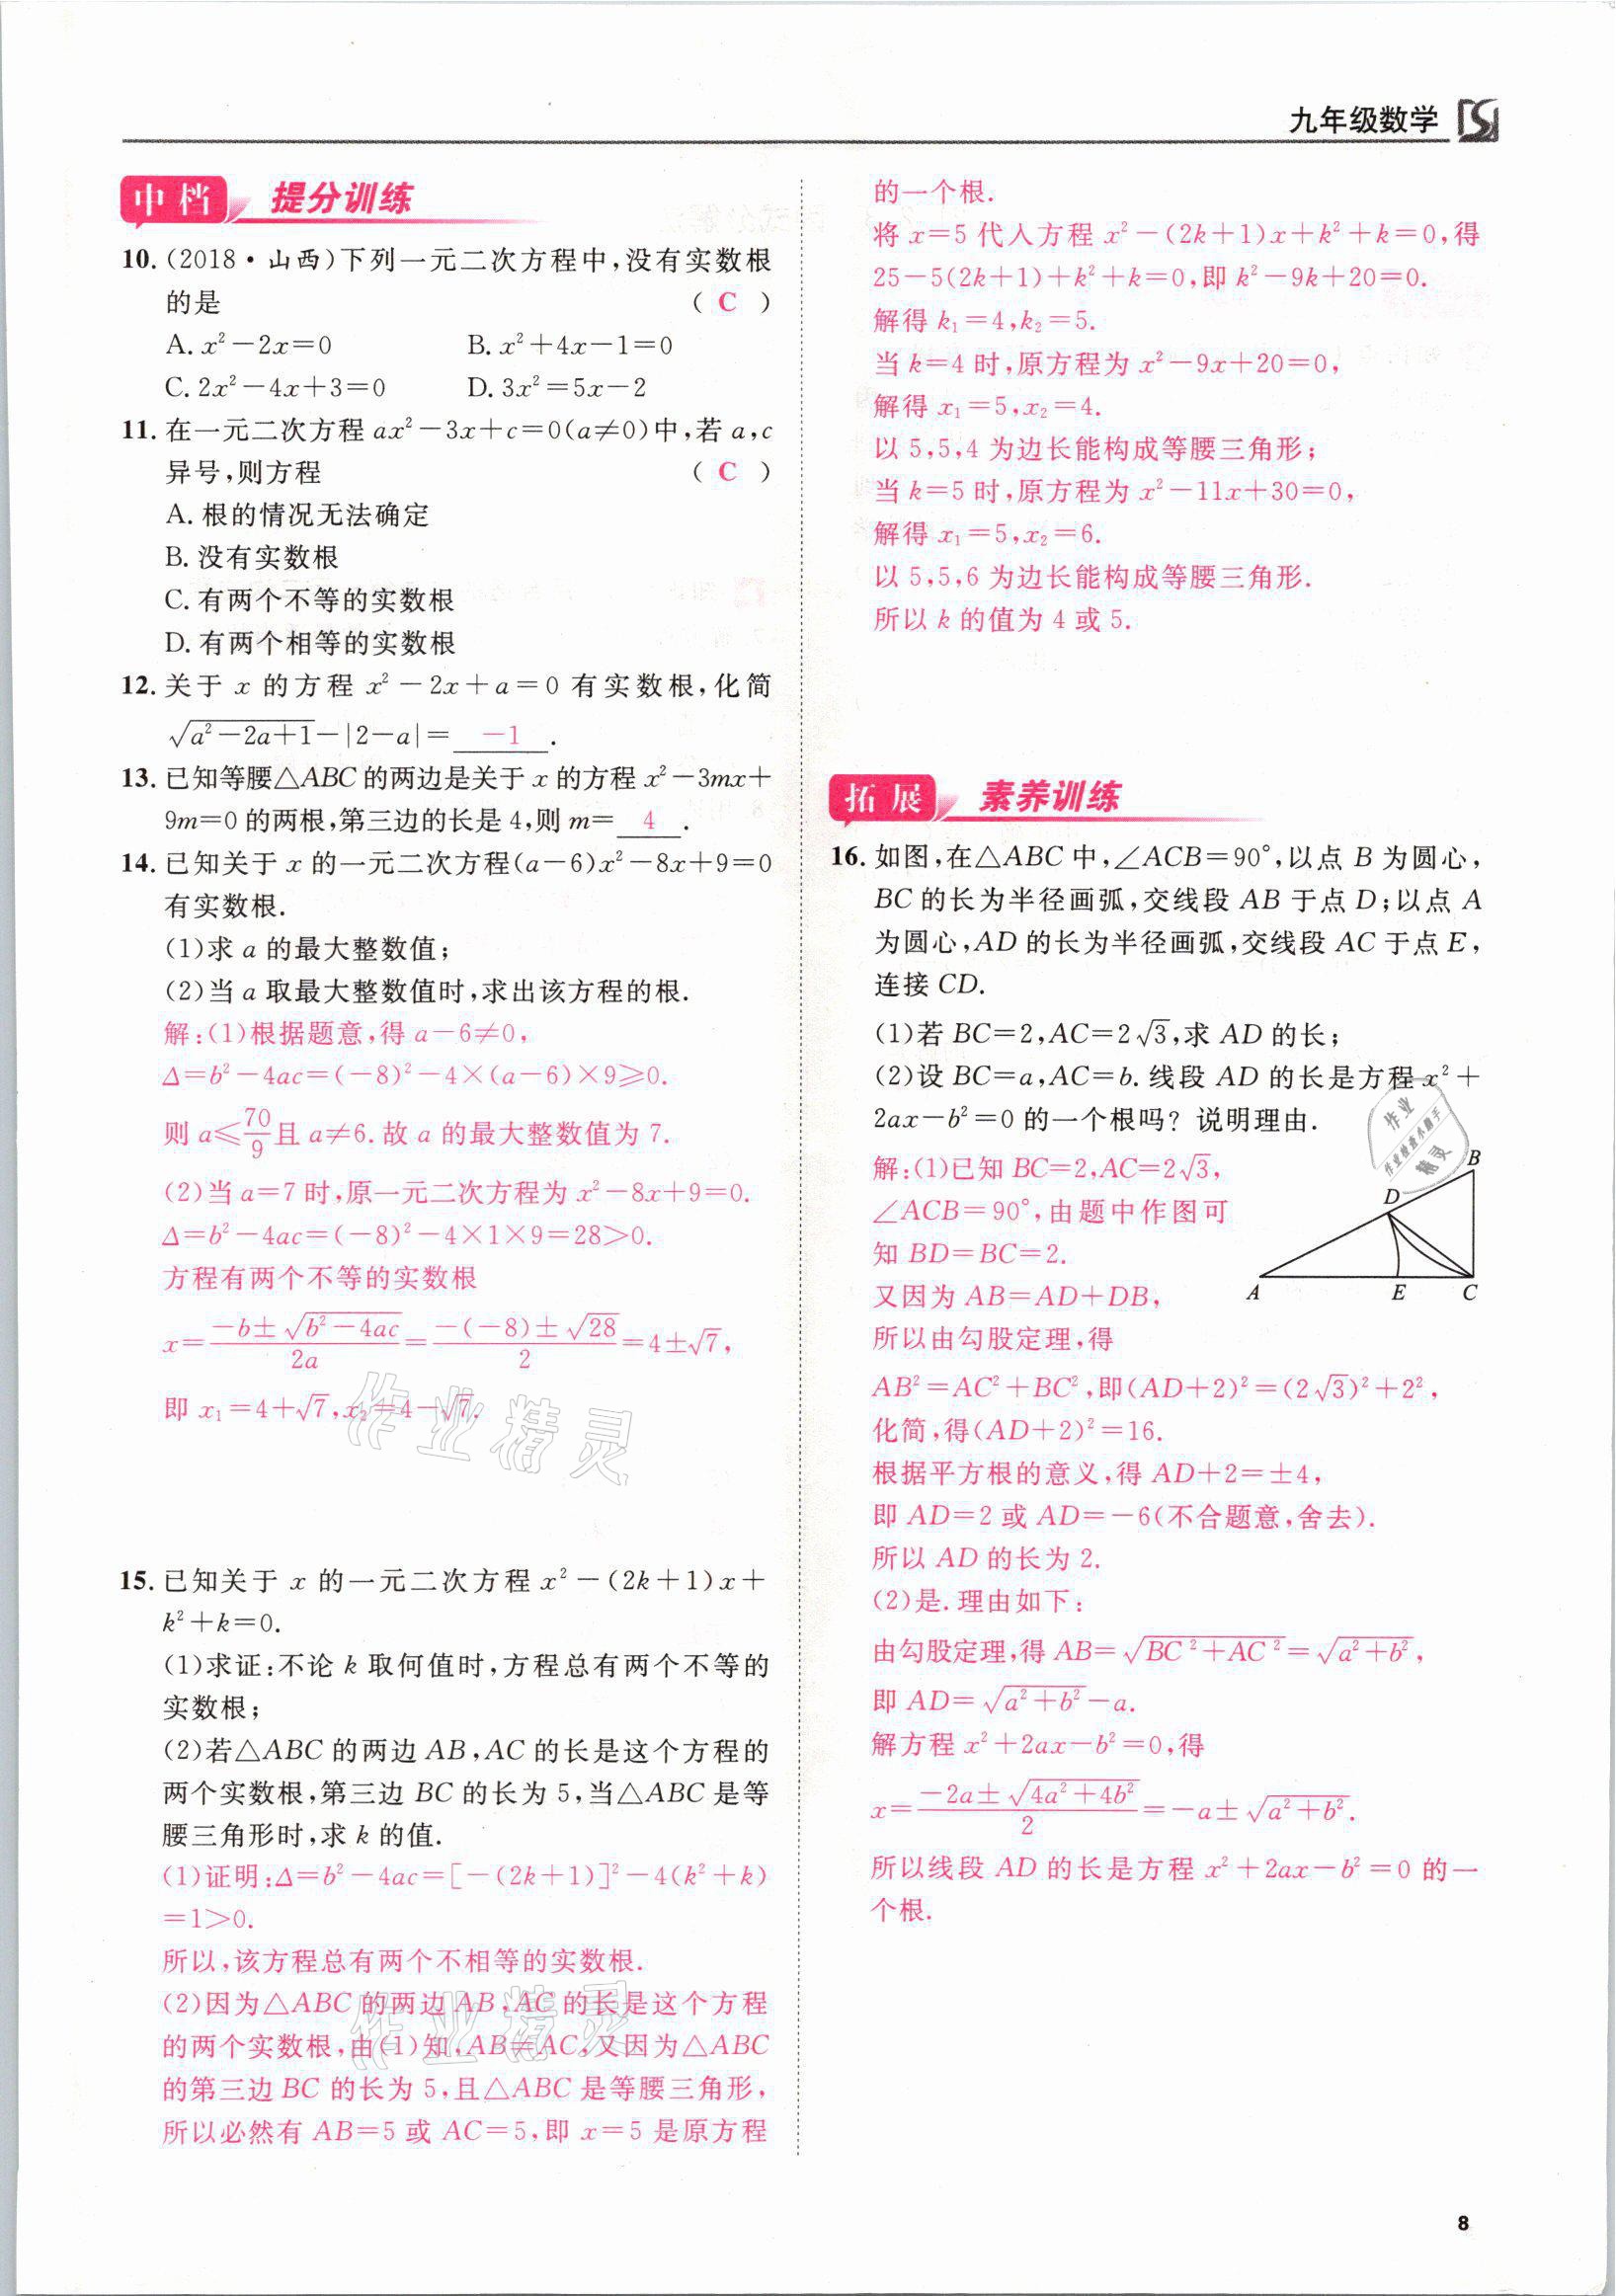 九年级数学
中档 提分训练
10. (2018·山西)下列一元二次方程中,没有实数根
的是 ( C )
A. x²－2x＝0 B. x²＋4x－1＝0
C. 2x²－4x＋3＝0 D. 3x²＝5x－2
11. 在一元二次方程 ax²－3x＋c＝0(a≠0)中,若 a,c
异号,则方程 ( C )
A. 根的情况无法确定
B. 没有实数根
C. 有两个不等的实数根
D. 有两个相等的实数根
12. 关于 x 的方程 x²－2x＋a＝0 有实数根,化简
√(a²－2a＋1)－|2－a|＝ －1 .
13. 已知等腰△ABC 的两边是关于 x 的方程 x²－3mx＋
9m＝0 的两根,第三边的长是 4,则 m＝ 4 .
14. 已知关于 x 的一元二次方程(a－6)x²－8x＋9＝0
有实数根.
(1)求 a 的最大整数值;
(2)当 a 取最大整数值时,求出该方程的根.
解:(1)根据题意,得 a－6≠0,
Δ＝b²－4ac＝(－8)²－4×(a－6)×9≥0.
则 a≤70/9且 a≠6. 故 a 的最大整数值为 7.
(2)当 a＝7 时,原一元二次方程为 x²－8x＋9＝0.
Δ＝b²－4ac＝(－8)²－4×1×9＝28>0.
方程有两个不等的实数根
x＝(－b±√(b²－4ac))/2a＝(－(－8)±√28)/2＝4±√7,
即 x₁＝4＋√7,x₂＝4－√7.
作业精灵
15. 已知关于 x 的一元二次方程 x²－(2k＋1)x＋
k²＋k＝0.
(1)求证:不论 k 取何值时,方程总有两个不等的
实数根;
(2)若△ABC 的两边 AB,AC 的长是这个方程的
两个实数根,第三边 BC 的长为 5,当△ABC 是等
腰三角形时,求 k 的值.
(1)证明:Δ＝b²－4ac＝[－(2k＋1)]²－4(k²＋k)
＝1>0.
所以,该方程总有两个不相等的实数根.
(2)因为△ABC 的两边 AB,AC 的长是这个方程
的两个实数根,由(1)知,AB≠AC,又因为△ABC
的第三边 BC 的长为 5,且△ABC 是等腰三角形,
所以必然有 AB＝5 或 AC＝5,即 x＝5 是原方程
作业精灵
的一个根.
将 x＝5 代入方程 x²－(2k＋1)x＋k²＋k＝0,得
25－5(2k＋1)＋k²＋k＝0,即 k²－9k＋20＝0.
解得 k₁＝4,k₂＝5.
当 k＝4 时,原方程为 x²－9x＋20＝0,
解得 x₁＝5,x₂＝4.
以 5,5,4 为边长能构成等腰三角形;
当 k＝5 时,原方程为 x²－11x＋30＝0,
解得 x₁＝5,x₂＝6.
以 5,5,6 为边长能构成等腰三角形.
所以 k 的值为 4 或 5.
拓展 素养训练
16. 如图,在△ABC 中,∠ACB＝90°,以点 B 为圆心,
BC 的长为半径画弧,交线段 AB 于点 D;以点 A
为圆心,AD 的长为半径画弧,交线段 AC 于点 E,
连接 CD.
(1)若 BC＝2,AC＝2√3,求 AD 的长;
(2)设 BC＝a,AC＝b. 线段 AD 的长是方程 x²＋
2ax－b²＝0 的一个根吗? 说明理由.
作业
精灵
B
D
A
E
C
解:(1)已知 BC＝2,AC＝2√3,
∠ACB＝90°,由题中作图可
知 BD＝BC＝2.
又因为 AB＝AD＋DB,
所以由勾股定理,得
AB²＝AC²＋BC²,即(AD＋2)²＝(2√3)²＋2²,
化简,得(AD＋2)²＝16.
根据平方根的意义,得 AD＋2＝±4,
即 AD＝2 或 AD＝－6(不合题意,舍去).
所以 AD 的长为 2.
(2)是. 理由如下:
由勾股定理,得 AB＝√(BC²＋AC²)＝√(a²＋b²),
即 AD＝√(a²＋b²)－a.
解方程 x²＋2ax－b²＝0,得
x＝(－2a±√(4a²＋4b²))/2＝－a±√(a²＋b²).
所以线段 AD 的长是方程 x²＋2ax－b²＝0 的一
个根.
8